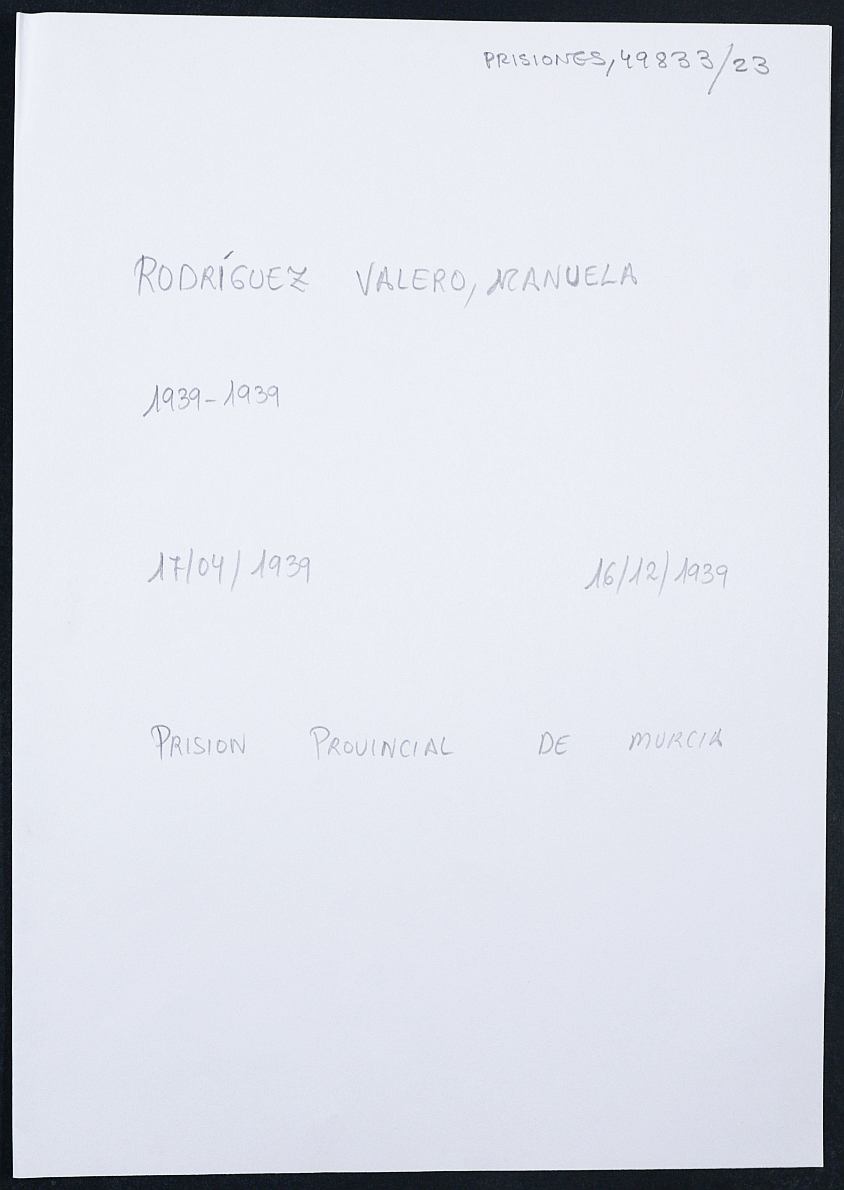 PRISIONES, 49833/23
RODRÍGUEZ VALERO, MANUELA
1939-1939
17/04/1939 16/12/1939
PRISION PROVINCIAL DE MURCIA